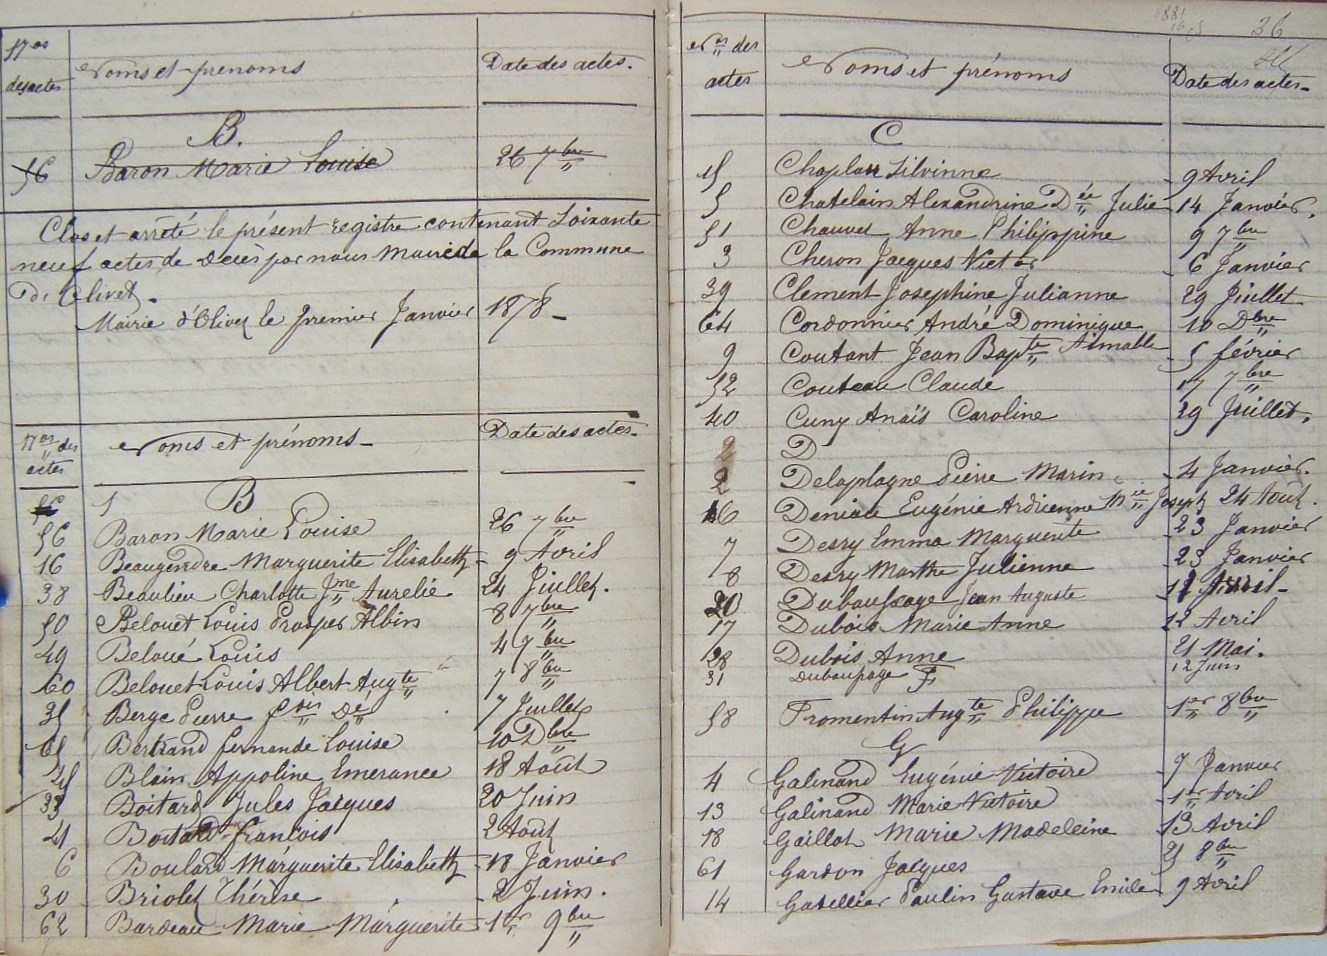 Nos des actes Noms et prénoms Date des actes.
B.
56 Baron Marie Louise 26 7bre
Clos et arrêté le présent registre contenant Soixante
neuf actes de décès par nous Maire de la Commune
d'Olivet.
Mairie d'Olivet le premier Janvier 1878
Nos des actes Noms et prénoms Date des actes
B
56 Baron Marie Louise 26 7bre
16 Beaugendre Marguerite Elisabeth 9 Avril
38 Beaulieu Charlotte Jme Aurelie 24 Juillet.
50 Belouet Louis Prosper Albin 8 7bre
49 Beloué Louis 4 7bre
60 Belouet Louis Albert Augte 7 8bre
35 Berge Pierre 7 Juillet
65 Bertrand fernande Louise 10 Dbre
45 Blain Appoline Emerance 18 Août
33 Boitard Jules Jacques 20 Juin
41 Boitard francois 2 Août
6 Boulard Marguerite Elisabeth 18 Janvier
30 Briolet Thérèse 2 Juin.
62 Bardeau Marie Marguerite 1er 9bre
1881
36
Nos des actes Noms et prénoms Date des actes
C
15 Chaplain Silvinne 9 Avril
5 Chatelain Alexandrine Dée Julie 14 Janvier.
51 Chauvet Anne Philippine 9 7bre
3 Cheron Jacques Victor 6 Janvier
39 Clement Josephine Julianne 29 Juillet
64 Cordonnier André Dominique 10 Dbre
9 Coutant Jean Bapte Aimable 5 février
52 Couteau Claude 17 7bre
40 Cuny Anaïs Caroline 29 Juillet.
D
2 Delaplagne Pierre Marin 4 Janvier.
46 Deniau Eugénie Ardrienne Mie Joseph 24 Aout.
7 Desry Emma Marguerite 23 Janvier
8 Desry Marthe Julienne 23 Janvier
20 Dubaupage Jean Auguste 11 Avril
17 Dubois Marie Anne 12 Avril
28 Dubois Anne 21 Mai.
31 Dubaupage 12 Juin
F
58 Fromentin Augte Philippe 1er 8bre
G
4 Galinand Eugénie Victoire 7 Janvier
13 Galinand Marie Victoire 1er Avril
18 Gaillot Marie Madeleine 13 Avril
61 Gardon Jacques 21 8bre
14 Gatellier Paulin Gustave Emile 9 Avril